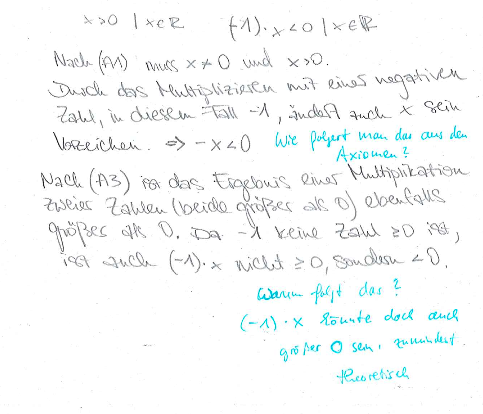 x>0 | x∈ℝ (-1)·x<0 | x∈ℝ
Nach (A1) muss x≠0 und x>0.
Durch das Multiplizieren mit einer negativen
Zahl, in diesem Fall -1, ändert auch x sein
Vorzeichen. => -x<0 Wie folgert man das aus den
Axiomen?
Nach (A3) ist das Ergebnis einer Multiplikation
zweier Zahlen (beide größer als 0) ebenfalls
größer als 0. Da -1 keine Zahl ≥0 ist,
ist auch (-1)·x nicht ≥0, sondern <0.
Warum folgt das?
(-1)·x könnte doch auch
größer 0 sein, zumindest
theoretisch